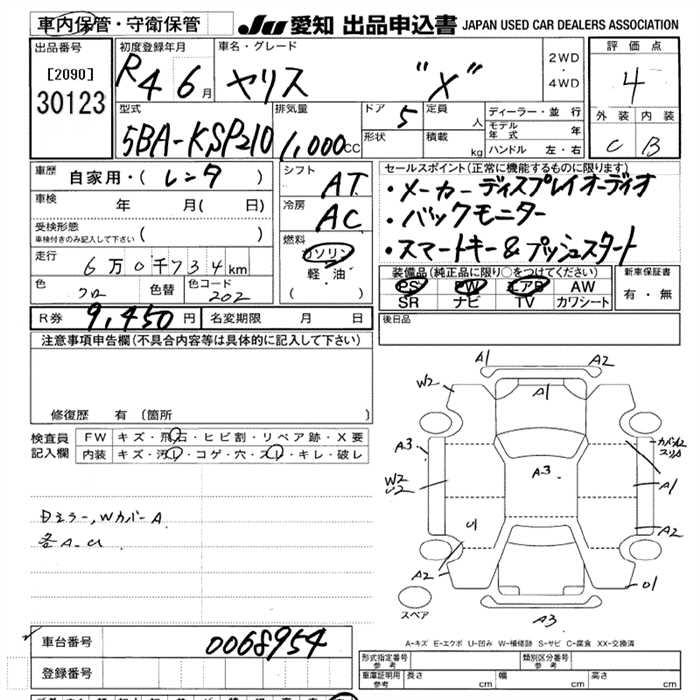 車内保管・守衛保管 JU 愛知 出品申込書 JAPAN USED CAR DEALERS ASSOCIATION
出品番号 初度登録年月 車名・グレード 2WD・4WD 評価点
[2090] R4 6月 ヤリス "X" 4
30123
型式 排気量 ドア 5 定員 人 ディーラー・並行 外装 内装
5BA-KSP210 1,000cc 形状 積載 kg モデル年式 年 C B
ハンドル 左・右
車歴 自家用・(レンタ) シフト AT セールスポイント(正常に機能するものに限ります)
車検 年 月( 日) 冷房 AC ・メーカーディスプレイオーディオ
受検形態 ( ) ・バックモニター
車検付きのみ記入して下さい 燃料 ガソリン ・スマートキー&プッシュスタート
走行 6万0千734km 軽・油 装備品(純正品に限り○をつけてください) 新車保証書
色 クロ 色替 色コード 202 ( ) PS PW エアB AW 有・無
SR ナビ TV カワシート
R券 9,450円 名変期限 月 日 後日品
注意事項申告欄(不具合内容等は具体的に記入して下さい)
修復歴 有(箇所
検査員記入欄 FW キズ・飛石・ヒビ割・リペア跡・X要
内装 キズ・汚レ・コゲ・穴・スレ・キレ・破レ
日ミラー,Wカバー A
各A-U
A1 A2
W2 A1
A3 A3 カバルレ2 スリA
W2 U2 A1
U A2
A2 01
スペア A3
A-キズ E-エクボ U-凹み W-補修跡 S-サビ C-腐食 XX-交換済
車台番号 0068954
登録番号
形式指定番号 参考 類別区分番号 参考
車庫証明用 参考 長さ cm 幅 cm 高さ cm